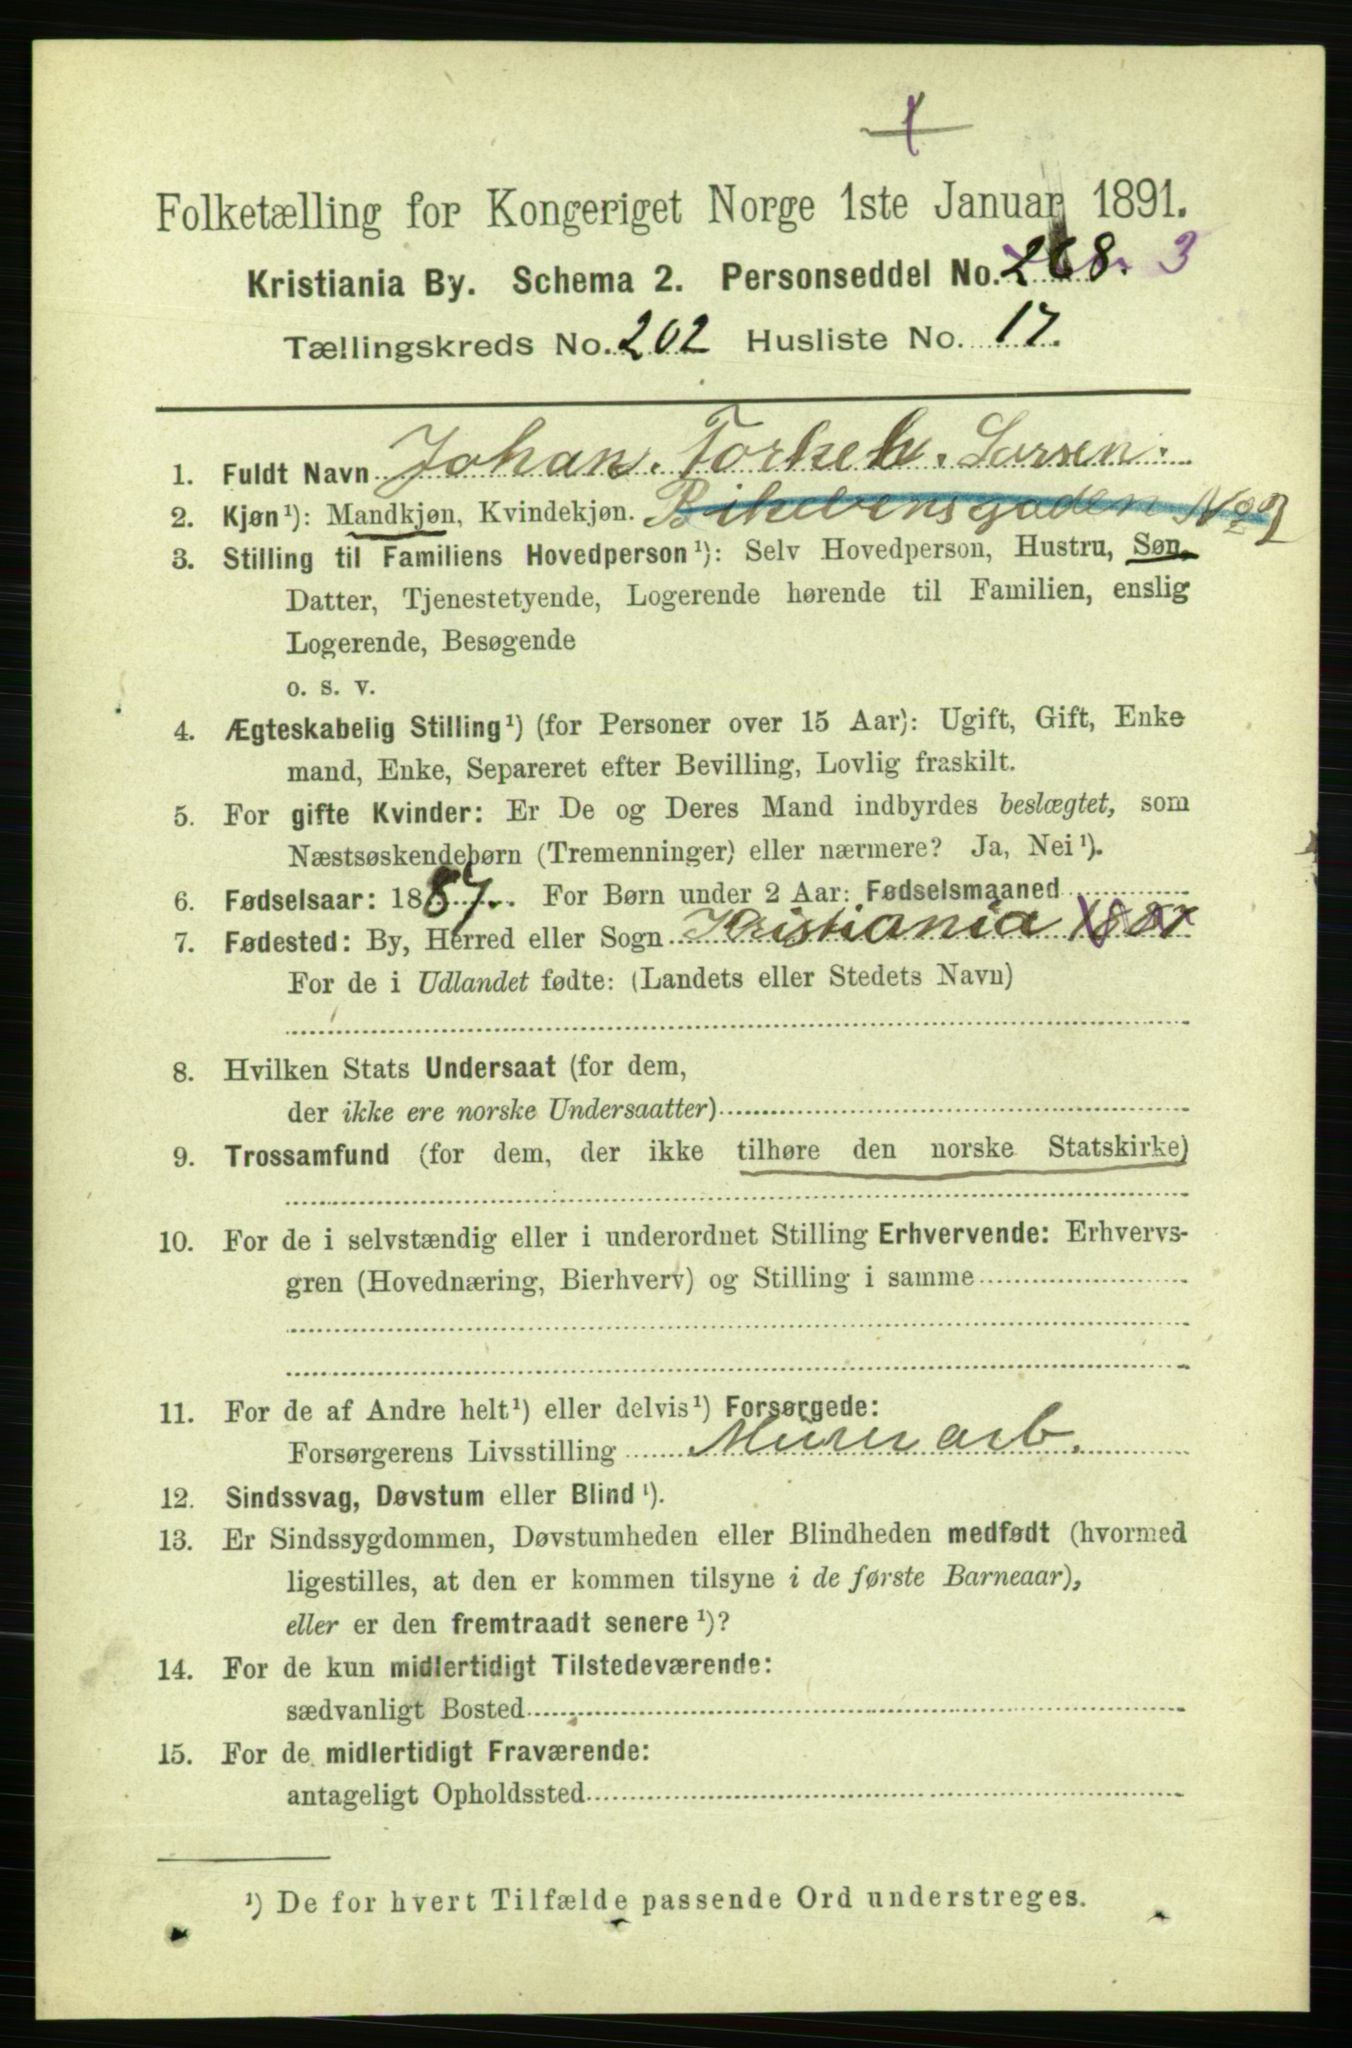 Folketælling for Kongeriget Norge 1ste Januar 1891.
Kristiania By. Schema 2. Personseddel No. 268. 3
Tællingskreds No. 202 Husliste No. 17.
1. Fuldt Navn Johan. Torkel. Larsen.
2. Kjøn¹): Mandkjøn, Kvindekjøn.
3. Stilling til Familiens Hovedperson¹): Selv Hovedperson, Hustru, Søn,
Datter, Tjenestetyende, Logerende hørende til Familien, enslig
Logerende, Besøgende
o. s. v.
4. Ægteskabelig Stilling¹) (for Personer over 15 Aar): Ugift, Gift, Enke
mand, Enke, Separeret efter Bevilling, Lovlig fraskilt.
5. For gifte Kvinder: Er De og Deres Mand indbyrdes beslægtet, som
Næstsøskendebørn (Tremenninger) eller nærmere? Ja, Nei¹).
6. Fødselsaar: 1887. For Børn under 2 Aar: Fødselsmaaned
7. Fødested: By, Herred eller Sogn Kristiania 1887
For de i Udlandet fødte: (Landets eller Stedets Navn)
8. Hvilken Stats Undersaat (for dem,
der ikke ere norske Undersaatter)
9. Trossamfund (for dem, der ikke tilhøre den norske Statskirke)
10. For de i selvstændig eller i underordnet Stilling Erhvervende: Erhvervs-
gren (Hovednæring, Bierhverv) og Stilling i samme
11. For de af Andre helt¹) eller delvis¹) Forsørgede:
Forsørgerens Livsstilling Murerarb.
12. Sindssvag, Døvstum eller Blind¹).
13. Er Sindssygdommen, Døvstumheden eller Blindheden medfødt (hvormed
ligestilles, at den er kommen tilsyne i de første Barneaar),
eller er den fremtraadt senere¹)?
14. For de kun midlertidigt Tilstedeværende:
sædvanligt Bosted
15. For de midlertidigt Fraværende:
antageligt Opholdssted
¹) De for hvert Tilfælde passende Ord understreges.